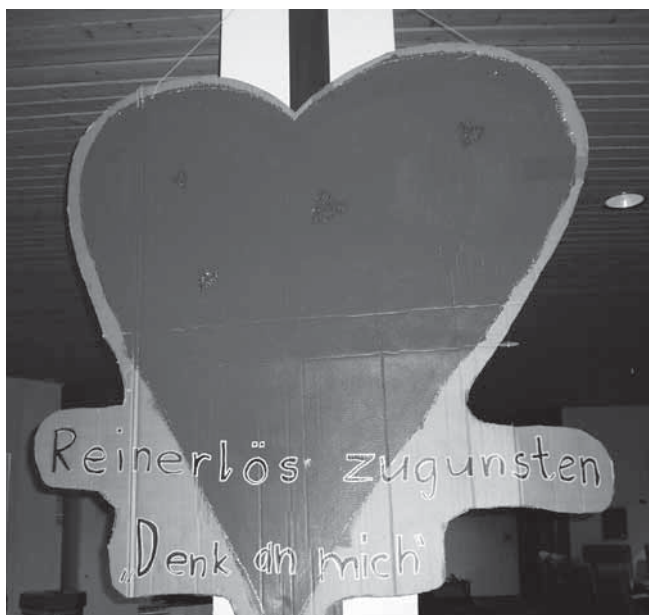 Reinerlös zugunsten
„Denk an mich“